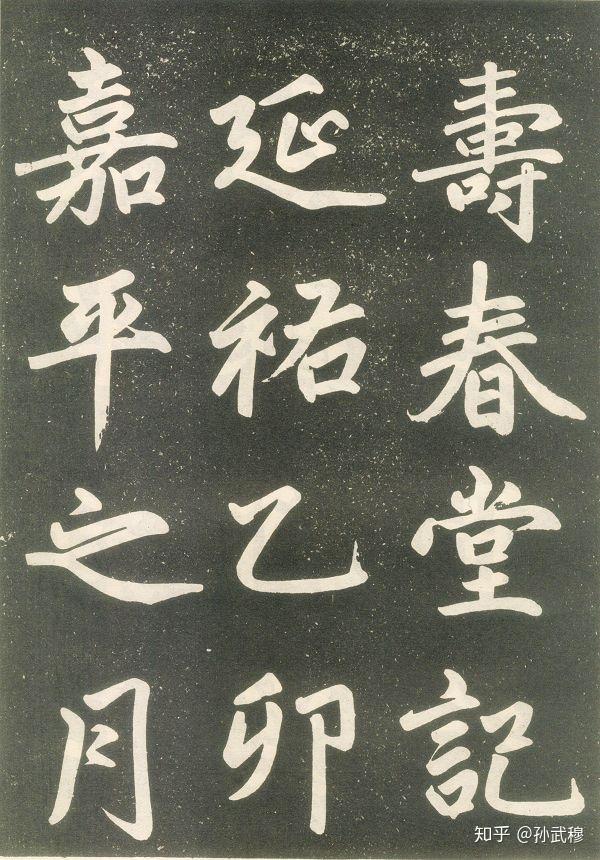 壽春堂記
延祐乙卯
嘉平之月
知乎 @孙武穆